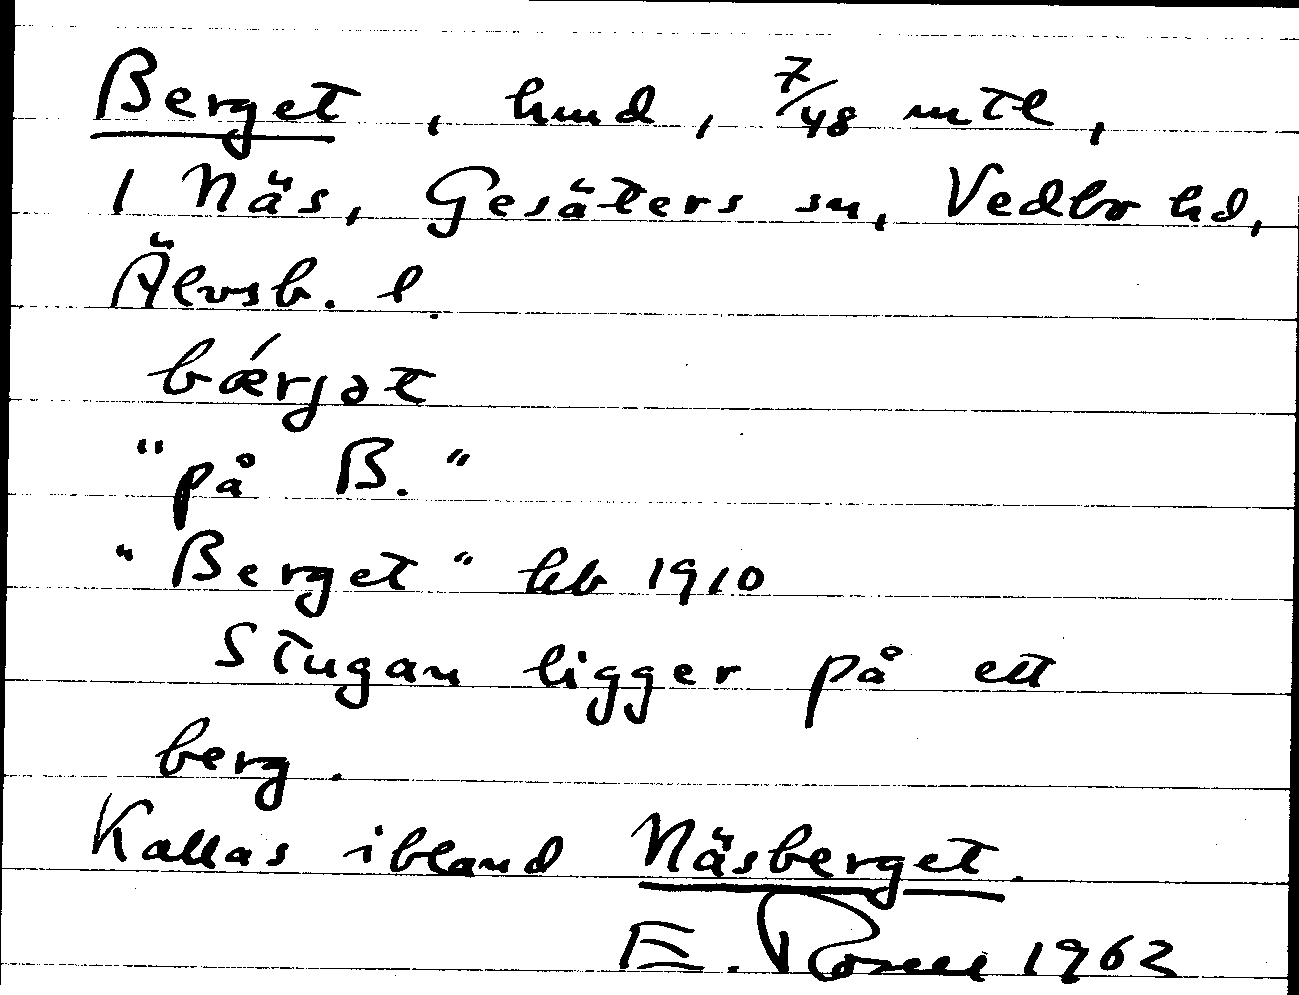 Berget, hmd, 7/48 mtl,
1 Näs, Gesäters sn, Vedbo hd,
Älvsb. l.
bǽrjət
"på B."
"Berget" hb 1910
Stugan ligger på ett
berg.
Kallas ibland Näsberget.
E. 1962